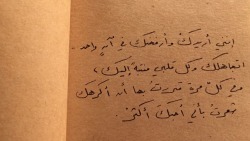 إنني أريدك وأرفضك في آنٍ واحد.
أتجاهلك وكل قلبي منتبه إليك،
وفي كل مرة تمنيت بها أن أكرهك
شعرت بأني أحبك أكثر.